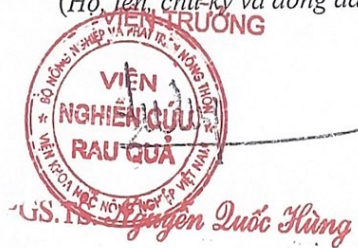 (Họ, tên, chữ ký và đóng dấ
VIỆN TRƯỞNG
BỘ NÔNG NGHIỆP VÀ PHÁT TRIỂN NÔNG THÔN
VIỆN
NGHIÊN CỨU
RAU QUẢ
VIỆN KHOA HỌC NÔNG NGHIỆP VIỆT NAM
GS.TS. Nguyễn Quốc Hùng